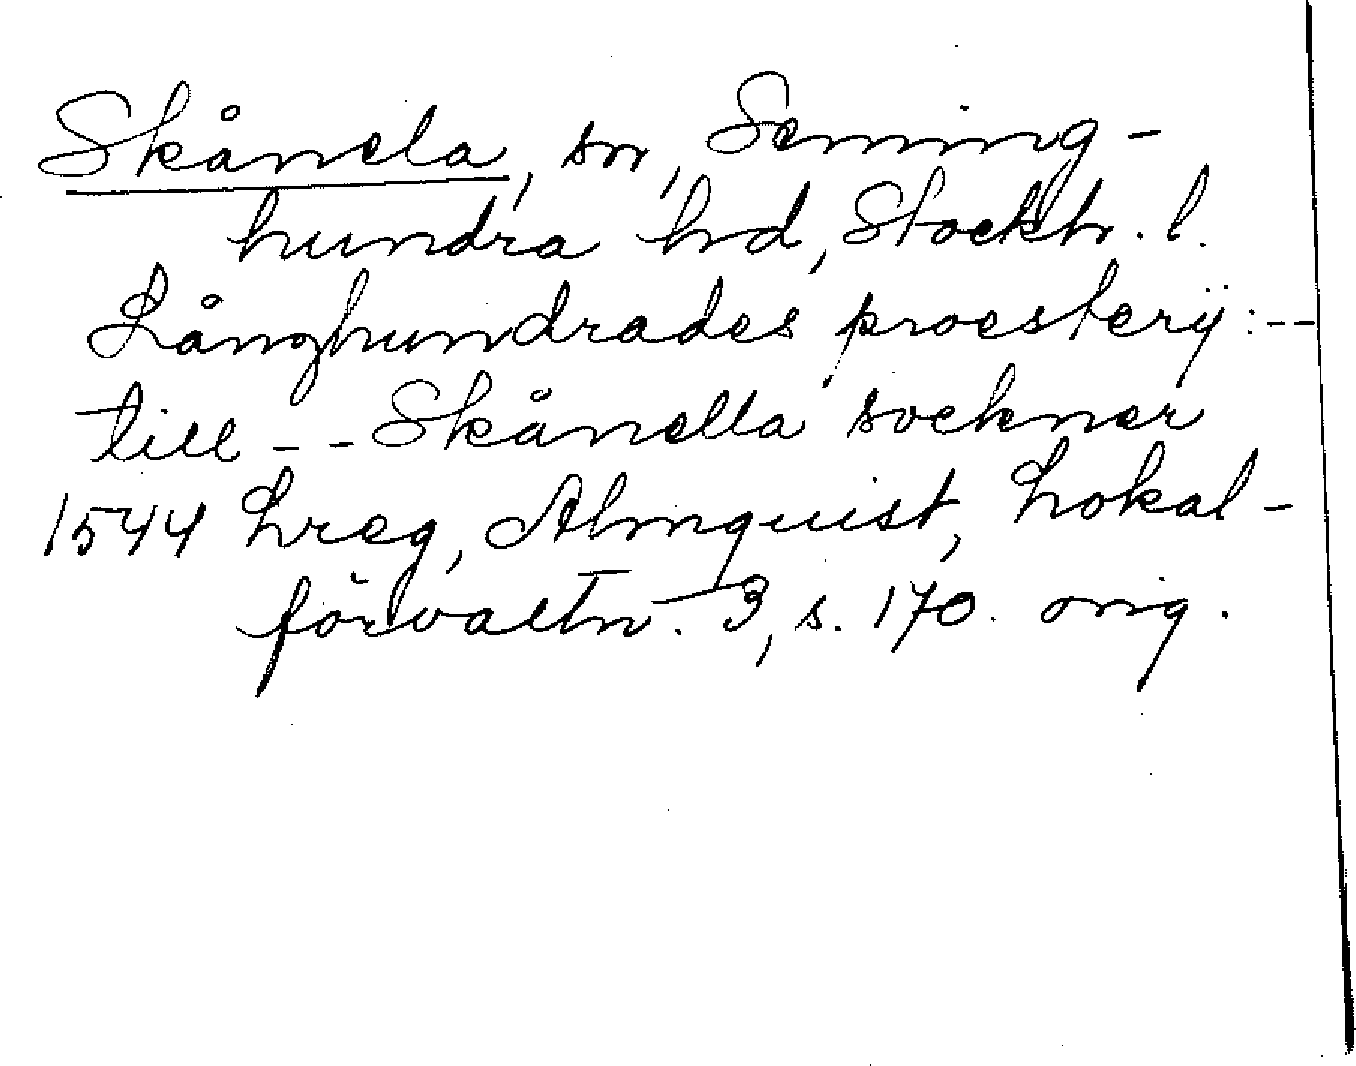 Skånela, sn, Seming-
hundra hrd, Stockh. l.
Långhundrades proesterÿ: --
till -- Skånella socknar
1544 Lreg, Almquist, Lokal-
förvaltn. 3, s. 170. orig.